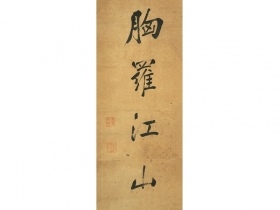 胸羅江山